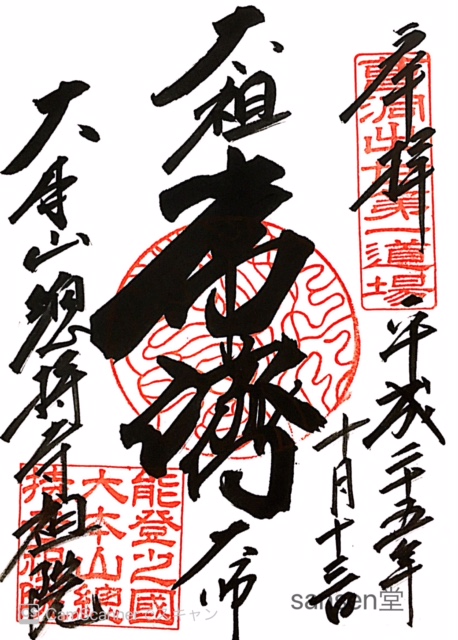 奉拝
曹洞出世第一道場
平成二十五年
十月十三日
太祖
常濟
大師
大本山總持寺祖院
能登之國
大本山總
持寺祖院
sansen堂
CamScanner でスキャン